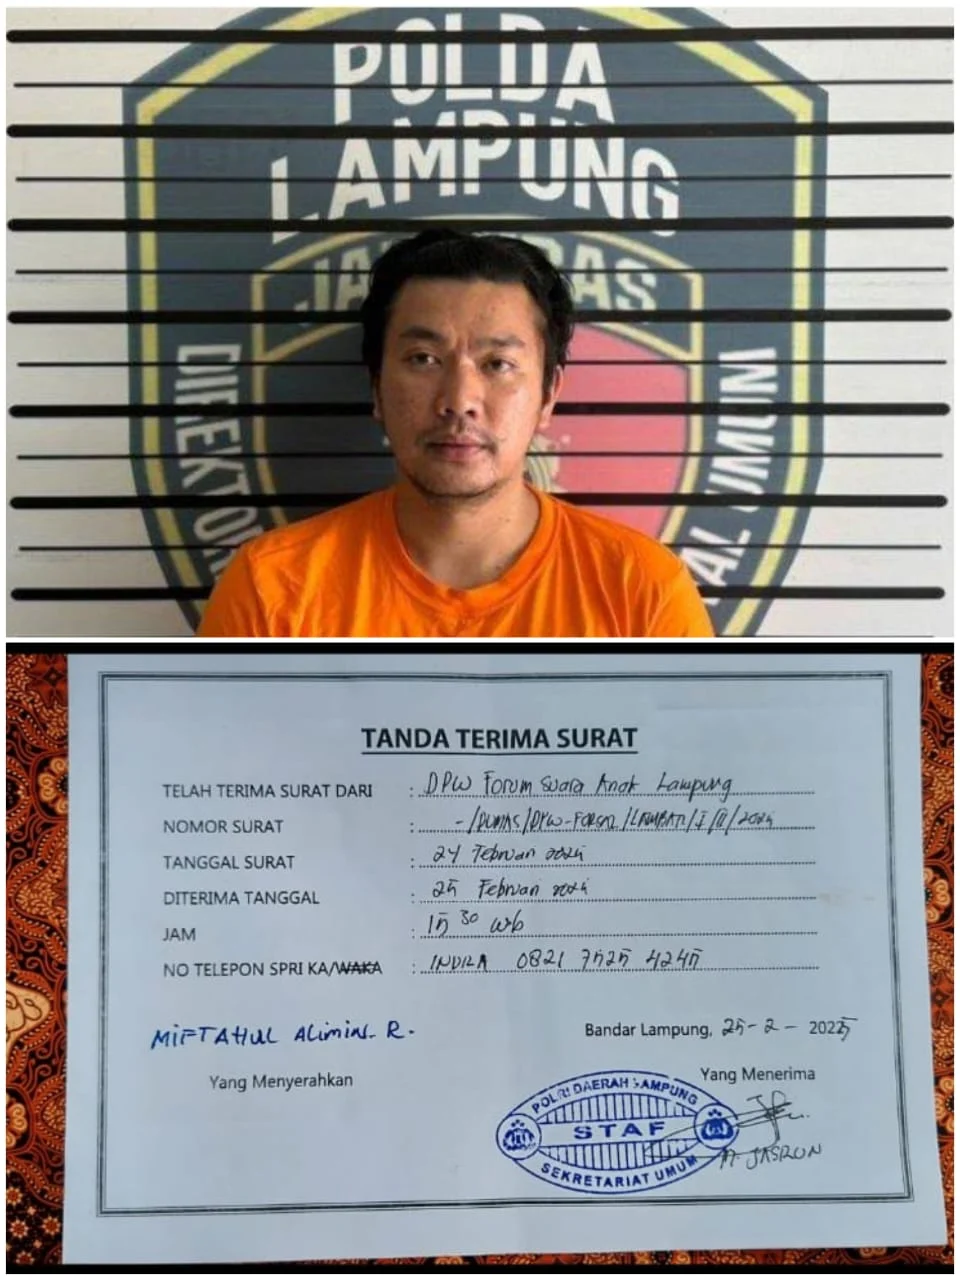 POLDA
LAMPUNG
JA RAS
DIREKTOR
AL UMUM
TANDA TERIMA SURAT
TELAH TERIMA SURAT DARI : DPW Forum Suara Anak Lampung
NOMOR SURAT : -/DUMAS/DPW-FORSAL/ /I/II/2025
TANGGAL SURAT : 24 Februari 2025
DITERIMA TANGGAL : 25 Februari 2025
JAM : 15 30 wib
NO TELEPON SPRI KA/WAKA : INDRA 0821 7525 4245
MIFTAHUL ALIMIN. R.
Bandar Lampung, 25 - 2 - 2025
Yang Menyerahkan
Yang Menerima
POLRI DAERAH LAMPUNG
STAF
SEKRETARIAT UMUM
JASRON